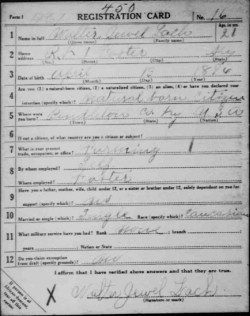 Form 1
450
REGISTRATION CARD
No. 16
1 Name in full Walter Jewel
(Given name) (Family name)
Age, in yrs. 21
2 Home address Foster Ky
3 Date of birth April 6
(Month) (Day) (Year)
4 Are you (1) a natural-born citizen, (2) a naturalized citizen, (3) an alien, (4) or have you declared your
intention (specify which)? Natural born citizen
5 Where were you born? Ky
6 If not a citizen, of what country are you a citizen or subject?
7 What is your present trade, occupation, or office? Farming
8 By whom employed? Self
Where employed? Foster
9 Have you a father, mother, wife, child under 12, or a sister or brother under 12, solely dependent on you for
support (specify which)?
10 Married or single (which)? Single Race (specify which)? Caucasian
11 What military service have you had? Rank None; branch
years; Nation or State
12 Do you claim exemption from draft (specify grounds)? No
I affirm that I have verified above answers and that they are true.
X Walter Jewel
(Signature or mark)